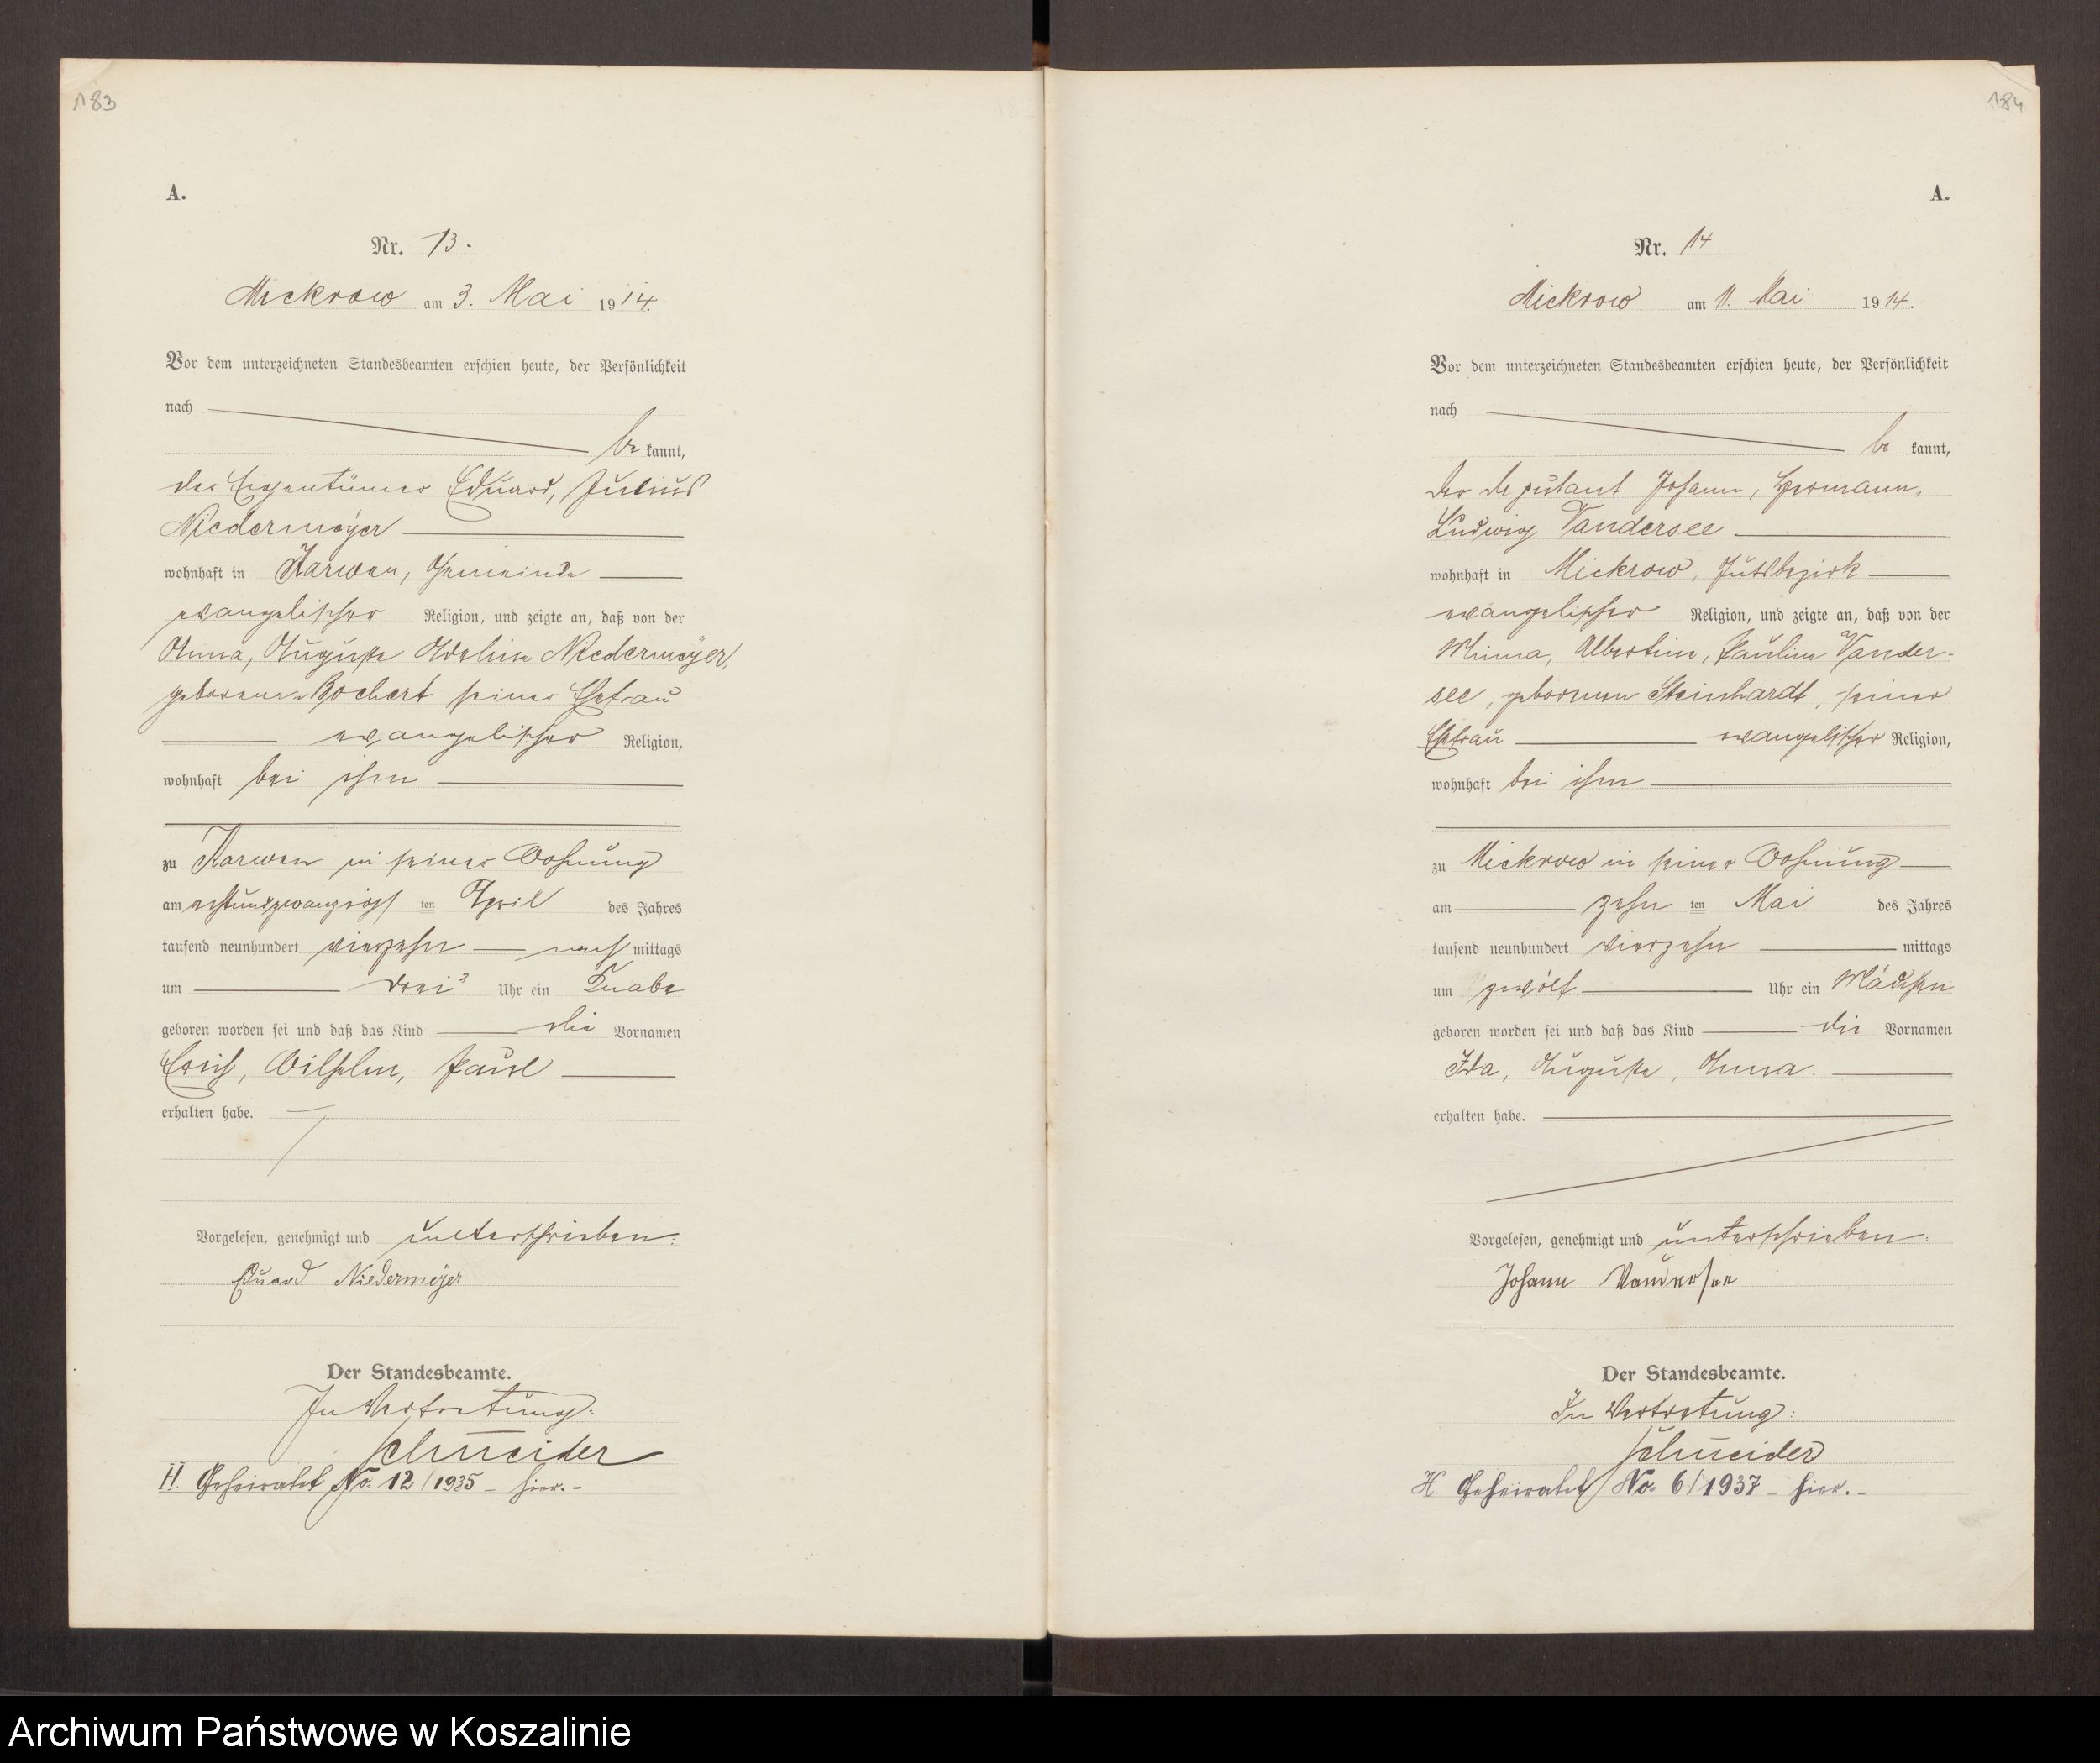 183
A.
Nr. 13.
Mickrow am 3. Mai 1914.
Vor dem unterzeichneten Standesbeamten erschien heute, der Persönlichkeit
nach
be kannt,
der Eigentümer Eduard, Julius
Niedermeÿer
wohnhaft in Karwen, Gemeinde
evangelischer Religion, und zeigte an, daß von der
Anna, Auguste Adeline Niedermeÿer,
geborenen Bochert seiner Ehefrau
evangelischer Religion,
wohnhaft bei ihm
zu Karwen in seiner Wohnung
am achtundzwanzigst ten April des Jahres
tausend neunhundert vierzehn nach mittags
um drei Uhr ein Knabe
geboren worden sei und daß das Kind die Vornamen
Erich, Wilhelm, Paul
erhalten habe.
Vorgelesen, genehmigt und unterschrieben:
Eduard Niedermeÿer
Der Standesbeamte.
In Vertretung:
Schneider
H. Geheiratet No. 12/1935 - hier. -
184
A.
Nr. 14
Mickrow am 11. Mai 1914.
Vor dem unterzeichneten Standesbeamten erschien heute, der Persönlichkeit
nach
be kannt,
der Deputant Johann, Hermann,
Ludwig Vandersee
wohnhaft in Mickrow, Gutsbezirk
evangelischer Religion, und zeigte an, daß von der
Minna, Albertine, Pauline Vander-
see, geborenen Steinhardt, seiner
Ehefrau evangelischer Religion,
wohnhaft bei ihm
zu Mickrow in seiner Wohnung
am zehn ten Mai des Jahres
tausend neunhundert vierzehn mittags
um zwölf Uhr ein Mädchen
geboren worden sei und daß das Kind die Vornamen
Ida, Auguste, Anna.
erhalten habe.
Vorgelesen, genehmigt und unterschrieben:
Johann Vandersee
Der Standesbeamte.
In Vertretung:
Schneider
H. Geheiratet No. 6/1937 - hier. -
Archiwum Państwowe w Koszalinie